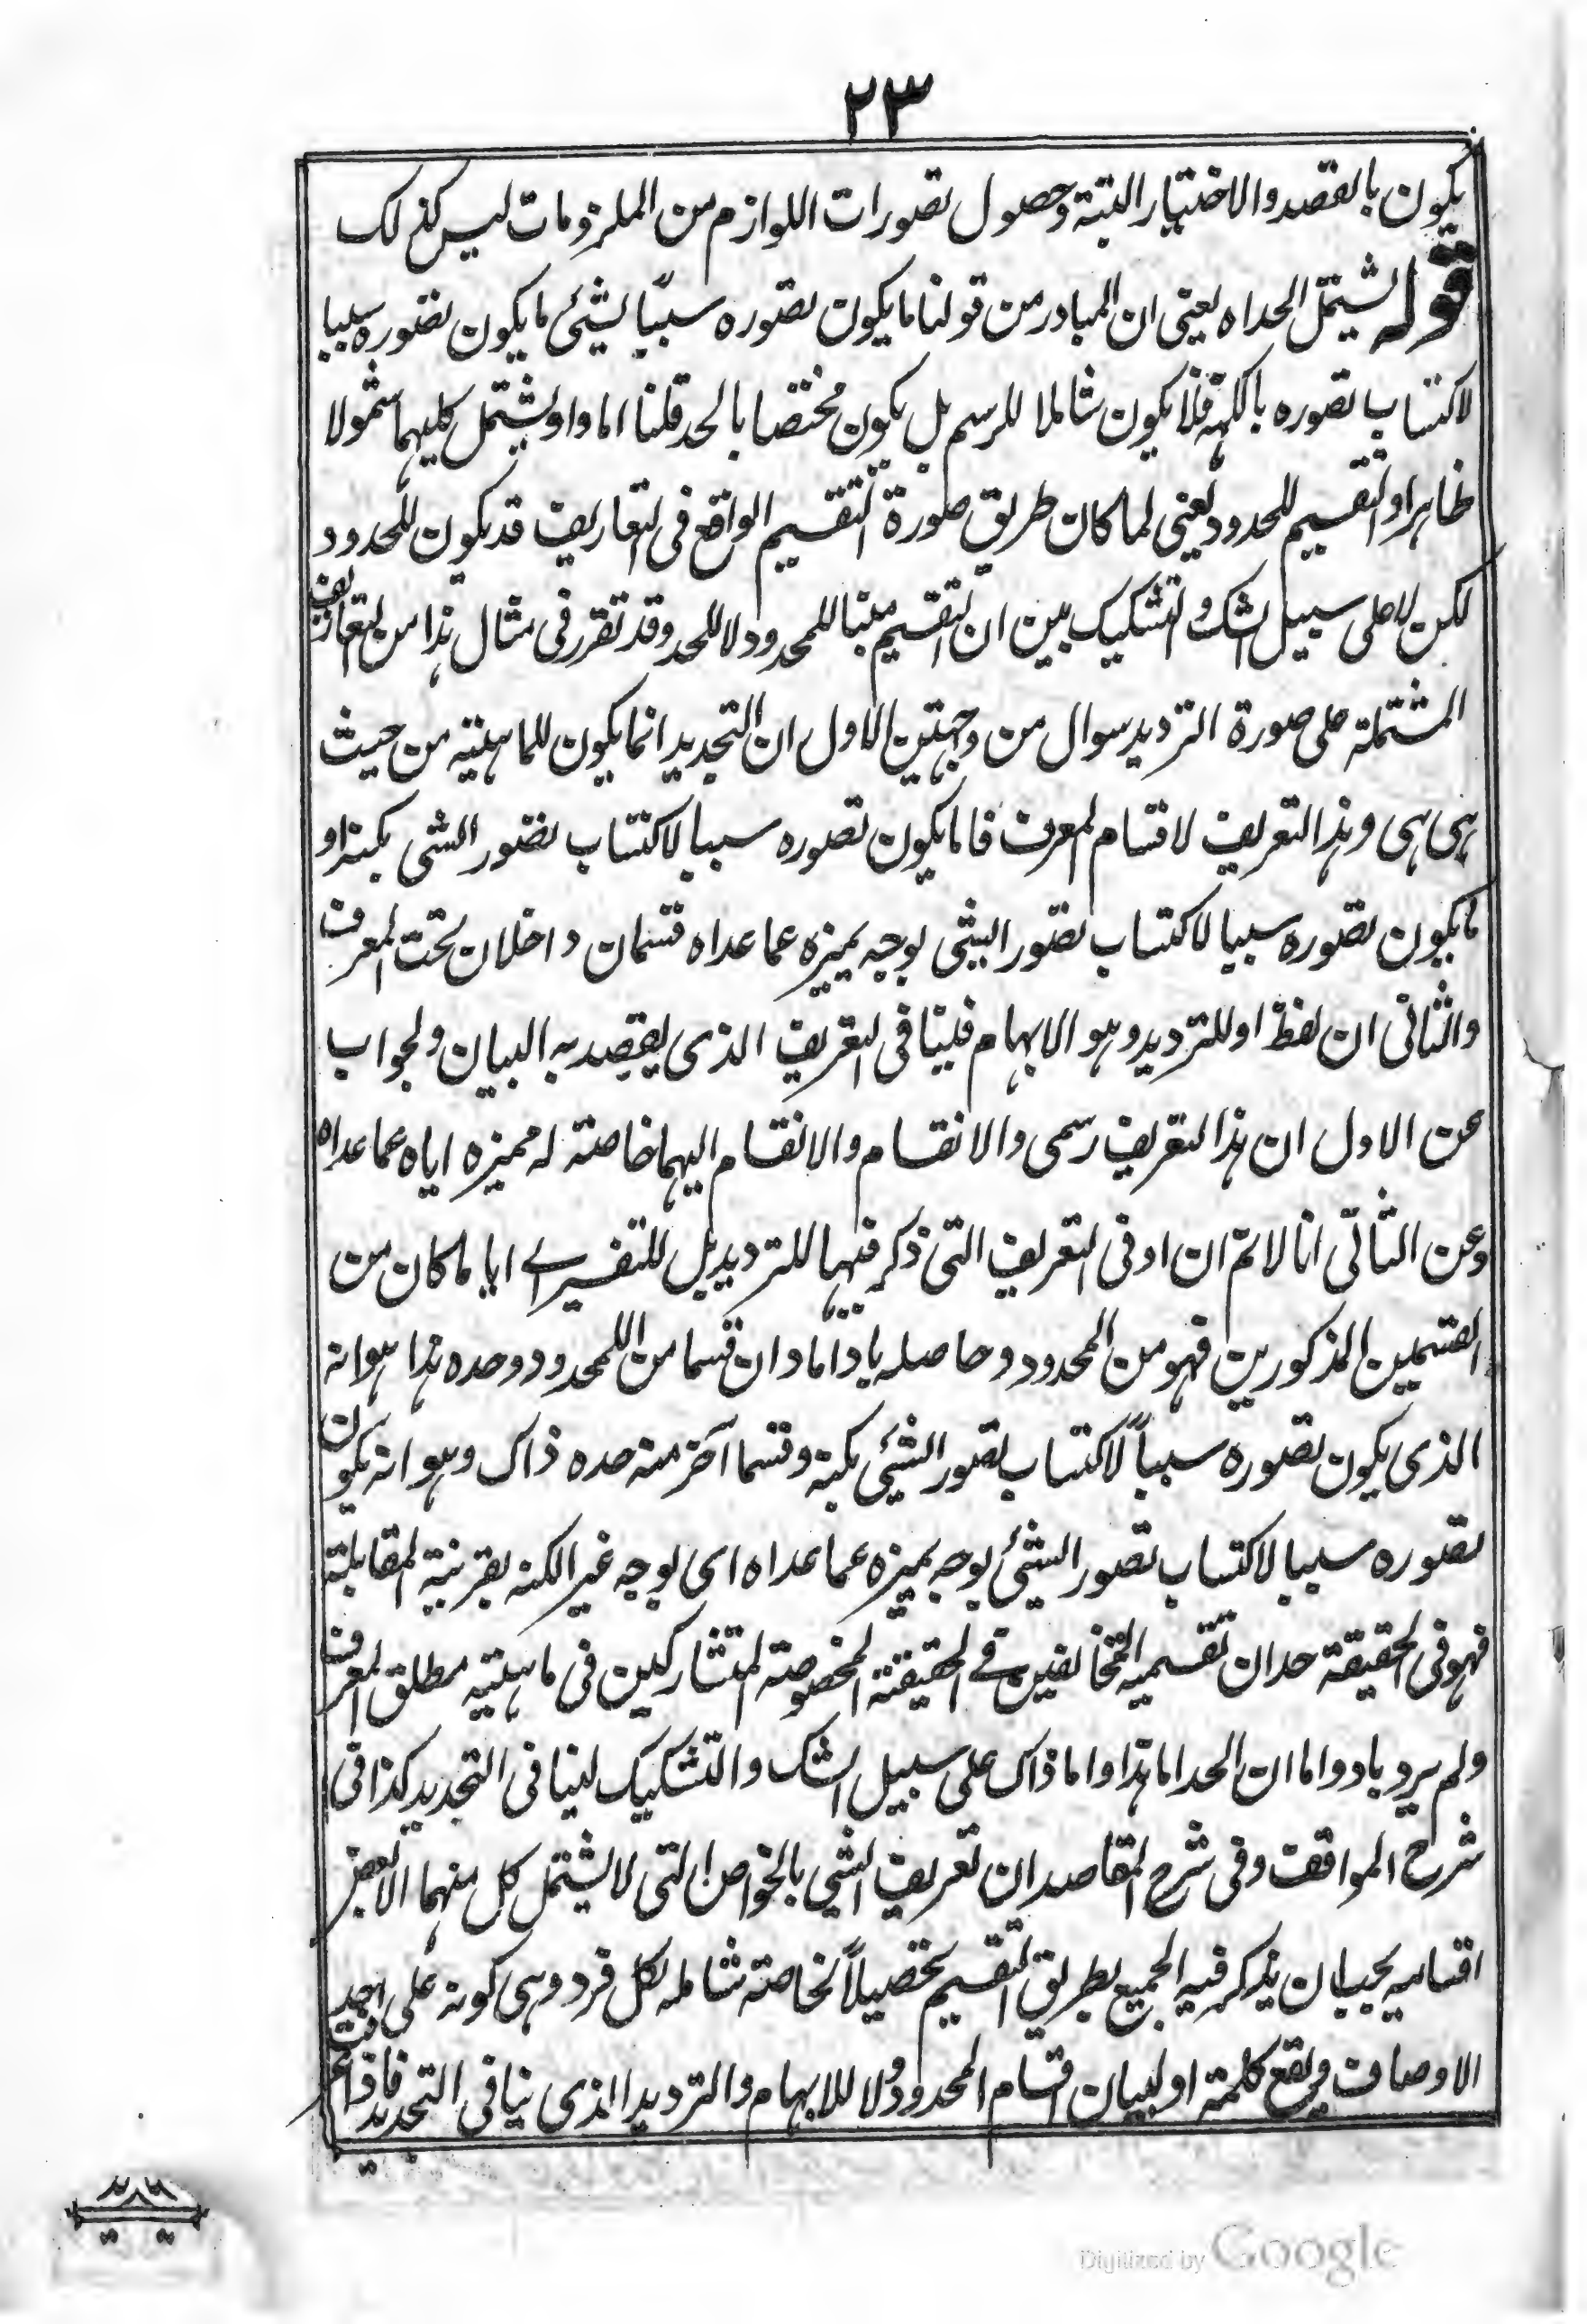 ٢٣
يكون بالقصد والاختيار البتة وحصول تصورات اللوازم من الملزومات ليس كذلك
قوله ليشتمل الحد اه يعنى ان المتبادر من قولنا ما يكون تصوره سببًا لشئ ما يكون تصوره سببا
لاكتساب تصوره بالكنه فلا يكون شاملا للرسم بل يكون مختصا بالحد قلنا اما واو ليشتمل كليهما شمولا
ظاهرا والتقسيم للمحدود يعنى لما كان طريق صورة التقسيم الواقع فى التعاريف قد يكون للمحدود
لكن لا على سبيل الشك والتشكيك بين ان التقسيم ههنا للمحدود لا للحد وقد تقرر فى مثال هذا من التعاريف
المشتملة على صورة الترديد سوال من وجهتين الاول ان التحديد انما يكون للماهية من حيث
هى هى وهذا التعريف لاقسام المعرف فما يكون تصوره سببا لاكتساب تصور الشى بكنهه او
ما يكون تصوره سببا لاكتساب تصور الشى بوجه يميزه عما عداه قسمان داخلان تحت المعرف
والثانى ان لفظ او للترديد وهو الابهام فينافى التعريف الذى يقصد به البيان والجواب
عن الاول ان هذا التعريف رسمى والانقسام والانقسام اليهما خاصة له مميزه اياه عما عداه
وعن الثانى انا لا نم ان او فى التعريف التى ذكر فيها للترديد بل للتفسير اے ايا ما كان من
القسمين المذكورين فهو من المحدود وحاصله باد امّا د ان قسما من اللمحدود وحده هذا هوانه
الذى يكون تصوره سبباً لاكتساب تصور الشئي بكنه وقسما آخر منه حده ذاك وهو انه يكون
تصوره سببا لاكتساب تصور الشئ بوجه يميزه عما عداه اى بوجه غير الكنه بقرينة المقابلة
فهو فى الحقيقة حدان تقسميه المخالفين فے الحقيقة المخصوصة المتشاركين فى ماهية مطلق المعرف
ولم يرد باد واما ان الحد اما هذا واما ذاك على سبيل الشك والتشكيك لينافى التحديد كذا فى
شرح المواقف وفى شرح المقاصد ان تعريف الشي بالخواص التى لا يشتمل كل منهما الا بعض
اقساميه يجب ان يذكر فيه الجميع بطريق التقسيم تحصيلاً لخاصة شاملة لكل فرد وهى كونه على احد
الاوصاف فيقع كلمة او لبيان اقسام المحدود ولا للابهام والترديد الذى ينافى التحديد
Digitized by Google